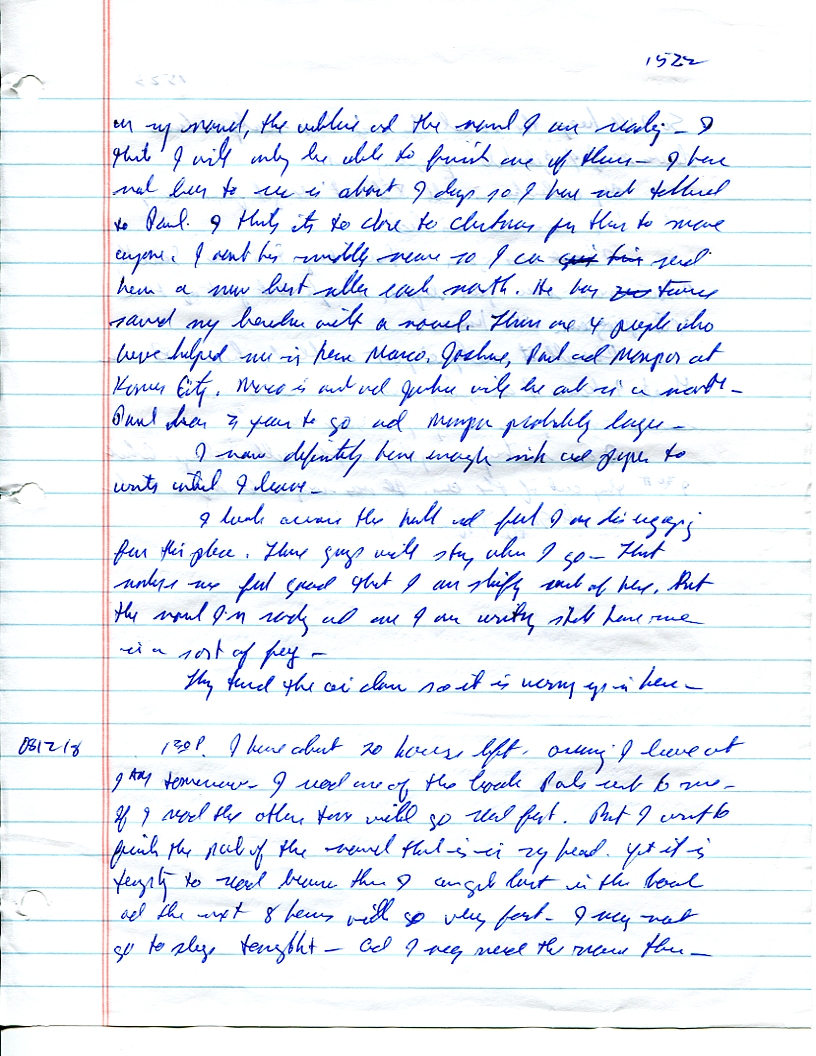 1522
on my novel, the outline and the novel I am reading - I
think I will only be able to finish one of them - I have
not been to rec in about 9 days so I have not talked
to Paul. I think its to close to Christmas for them to move
anyone. I want his so I can send
him a new best seller each month. He has twice
saved my with a novel. There are 4 people who
have helped me in here Marco, Joshua, Paul and at
City. Marco is out and Joshua will be out in a month -
Paul has 3 years to go and probably longer -
I now definitely have enough ink and paper to
write until I leave -
I look across the hall and feel I am disengaging
from this place. These guys will stay when I go - That
makes me feel good that I am out of here. But
the novel I'm reading and one I am writing still have me
in a sort of -
They turned the air down so it is warming up in here -
081218
130P. I have about 20 hours left. assuming I leave at
9 AM tomorrow - I read one of the books Paul sent to me -
If I read the other time will go real fast. But I want to
finish the part of the novel that is in my head. Yet it is
tempting to read because then I can get lost in the book
and the next 8 hours will go very fast - I may not
go to sleep tonight - and I may need the then -